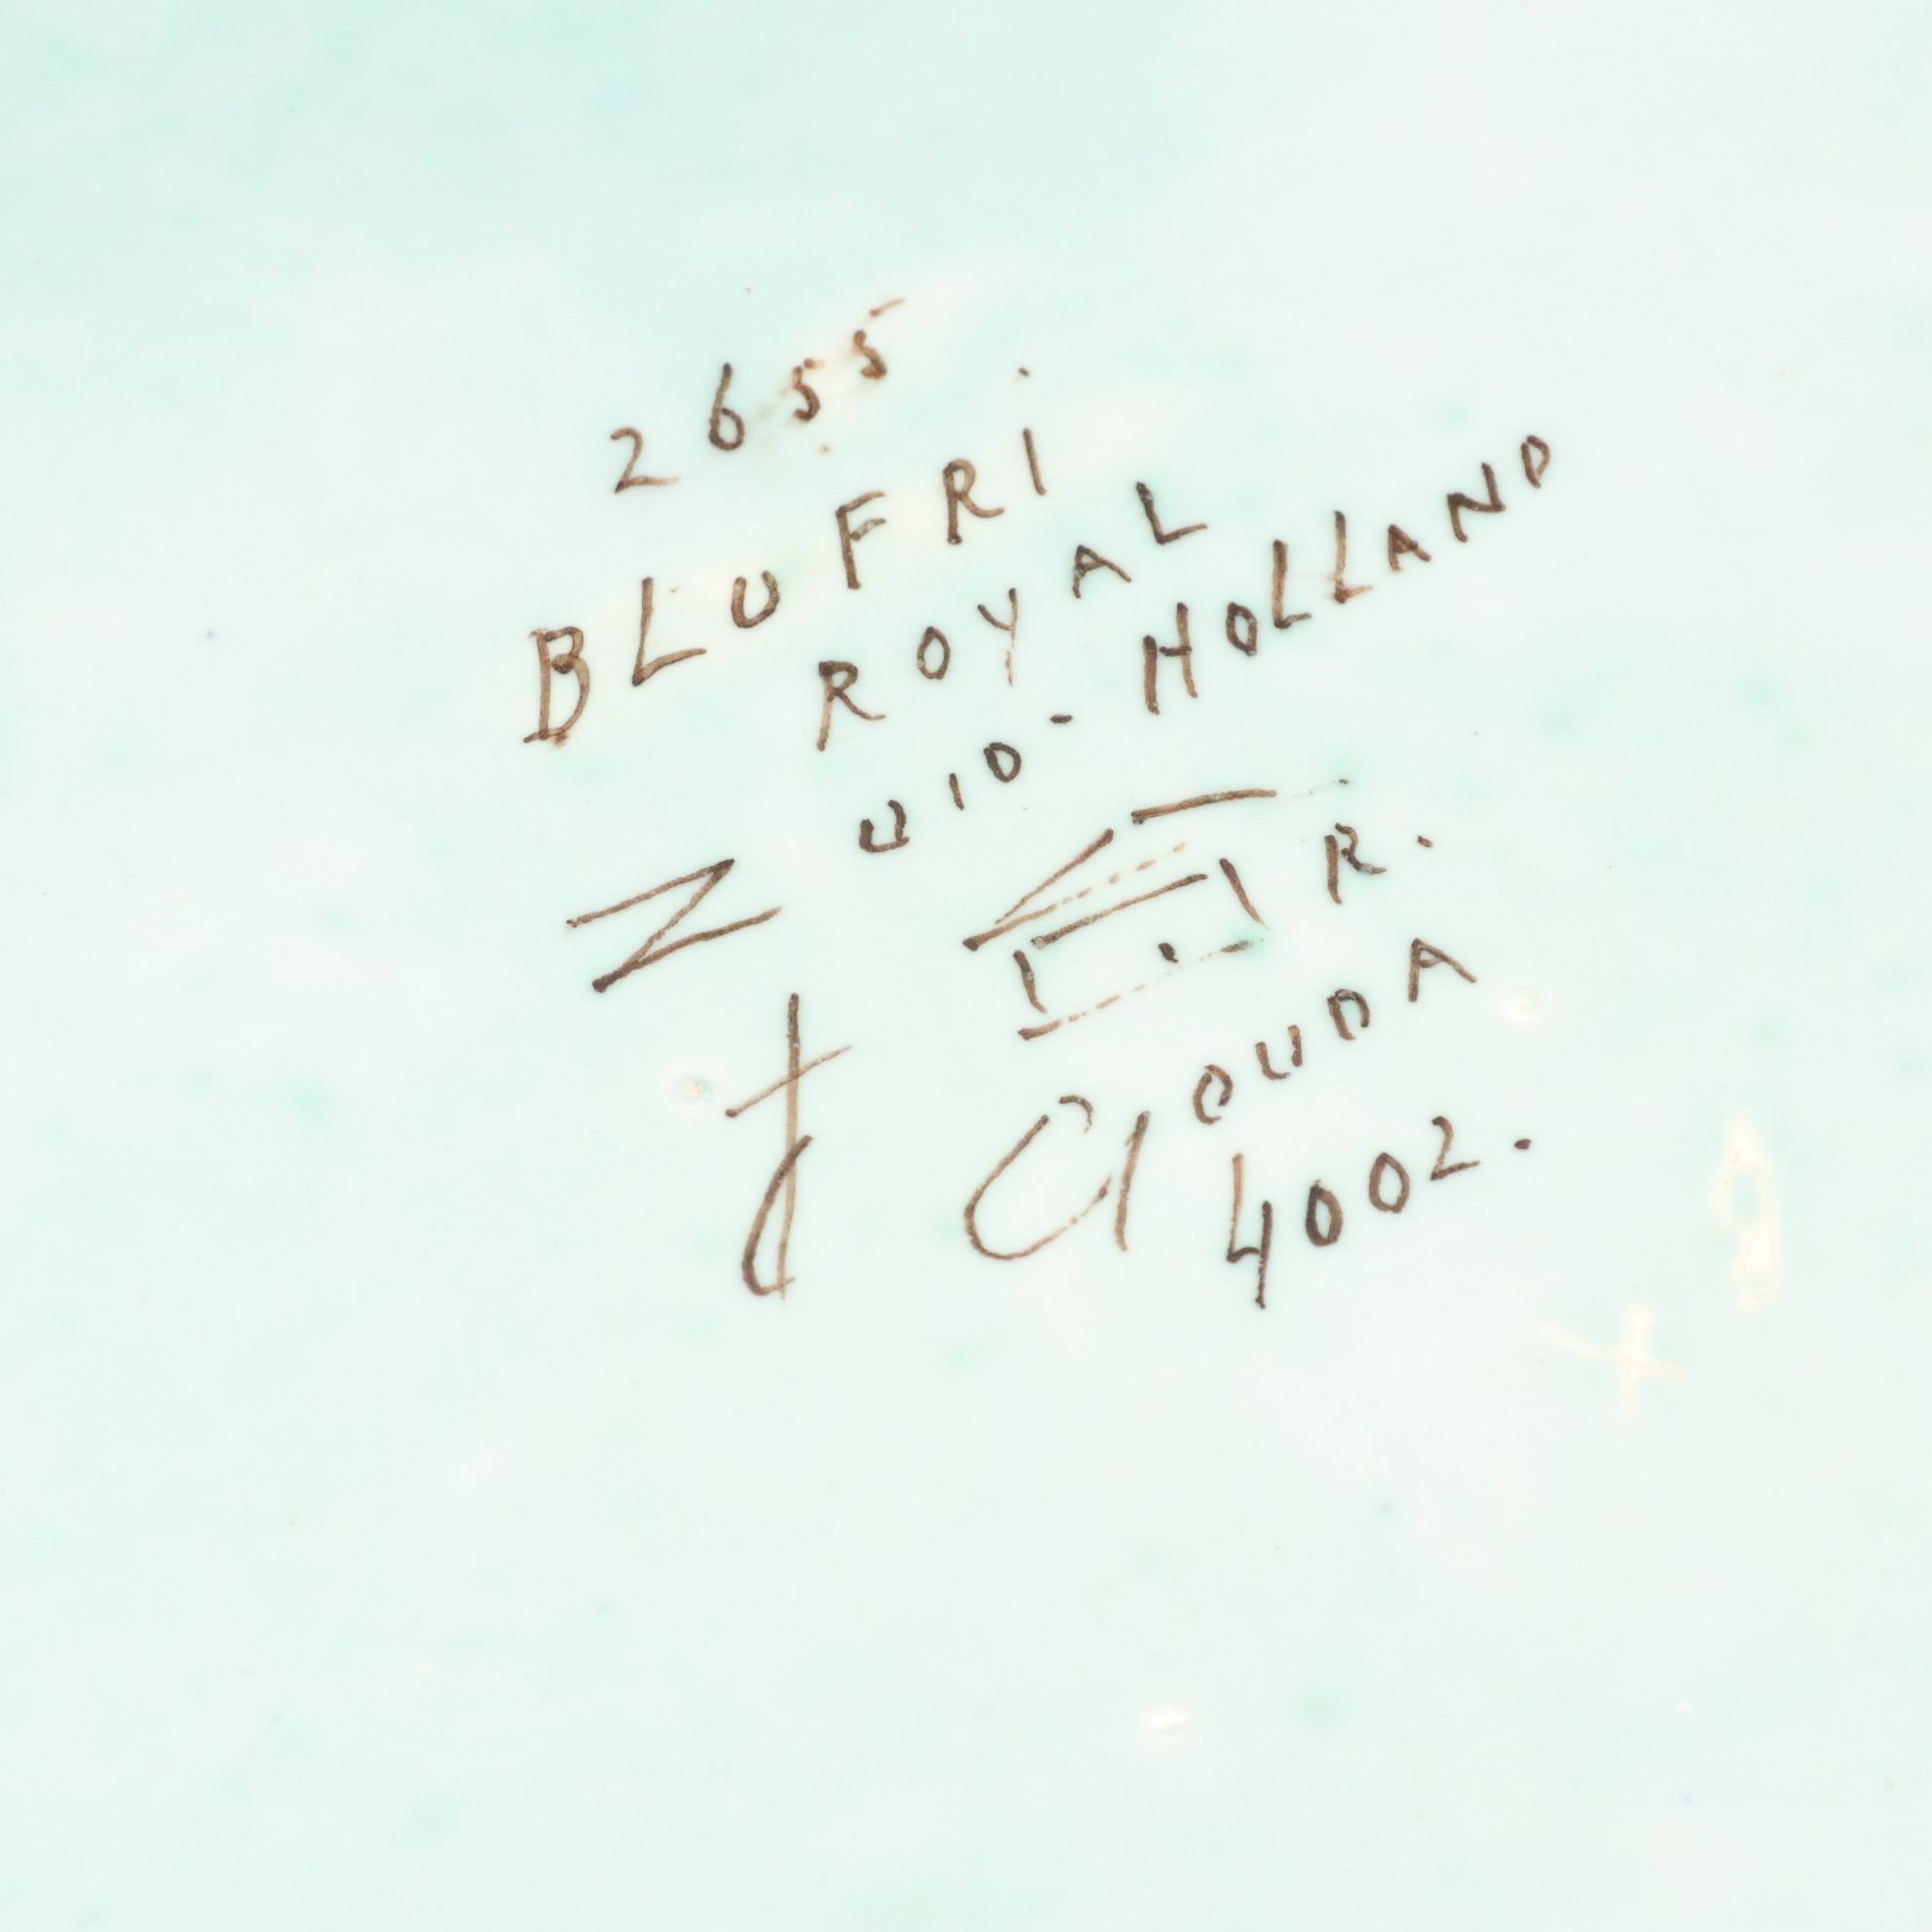 2655
BLUFRI
ROYAL
ZUID-HOLLAND
R.
GOUDA
4002.